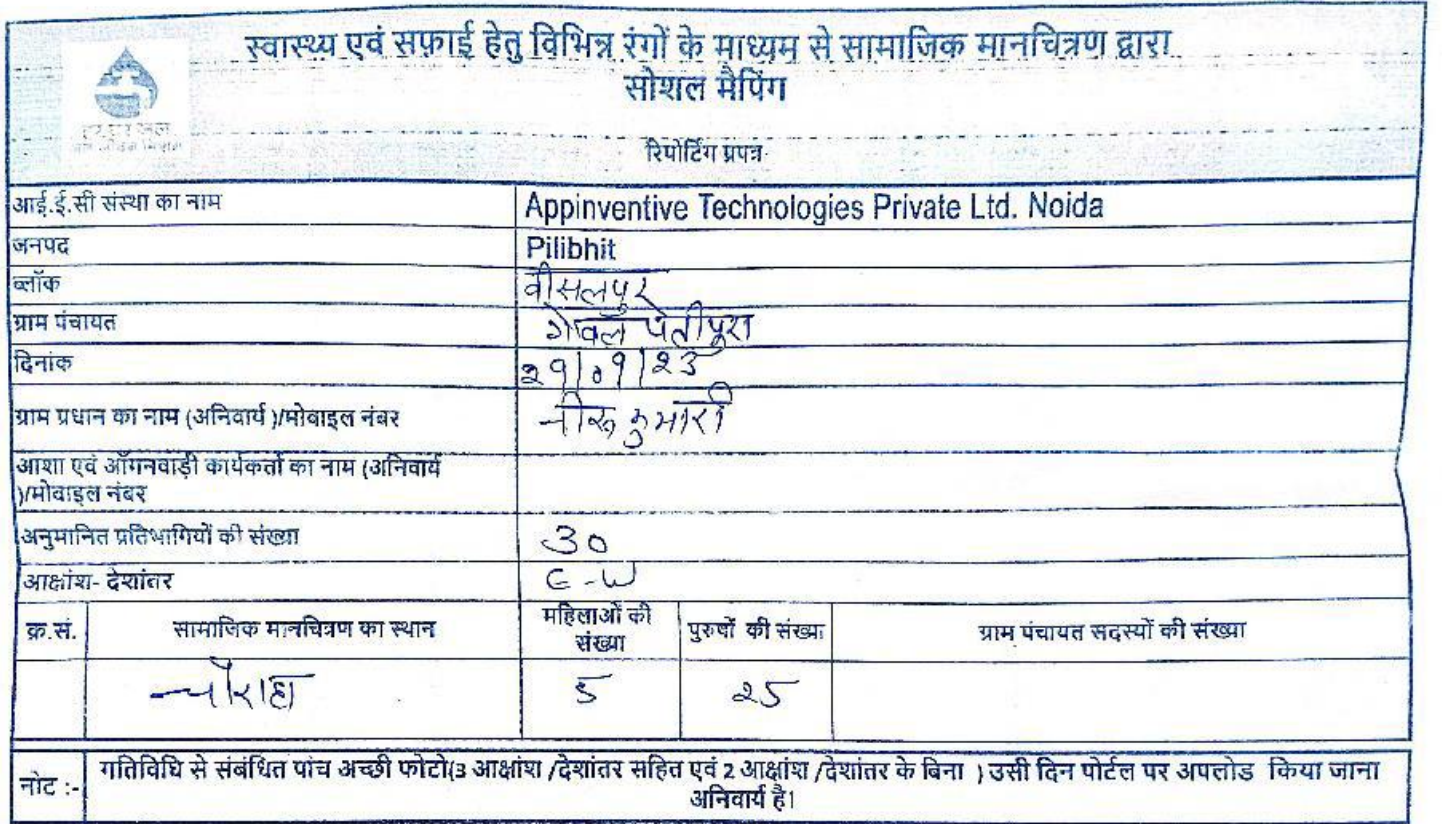 स्वास्थ्य एवं सफ़ाई हेतु विभिन्न रंगों के माध्यम से सामाजिक मानचित्रण द्वारा
सोशल मैपिंग
हर घर जल
जल जीवन मिशन
रिपोर्टिंग प्रपत्र
आई.ई.सी संस्था का नाम Appinventive Technologies Private Ltd. Noida
जनपद Pilibhit
ब्लॉक वीसलपुर
ग्राम पंचायत
दिनांक 29/09/23
ग्राम प्रधान का नाम (अनिवार्य )/मोबाइल नंबर नीरू कुमारी
आशा एवं आँगनवाड़ी कार्यकर्ता का नाम (अनिवार्य
)/मोवाइल नंबर
अनुमानित प्रतिभागियों की संख्या 30
आक्षांश- देशांतर E-W
क्र.सं. सामाजिक मानचित्रण का स्थान महिलाओं की संख्या पुरुषों की संख्या ग्राम पंचायत सदस्यों की संख्या
चौराहा 5 25
नोट :- गतिविधि से संबंधित पांच अच्छी फोटो(3 आक्षांश /देशांतर सहित एवं 2 आक्षांश /देशांतर के बिना ) उसी दिन पोर्टल पर अपलोड किया जाना
अनिवार्य है।